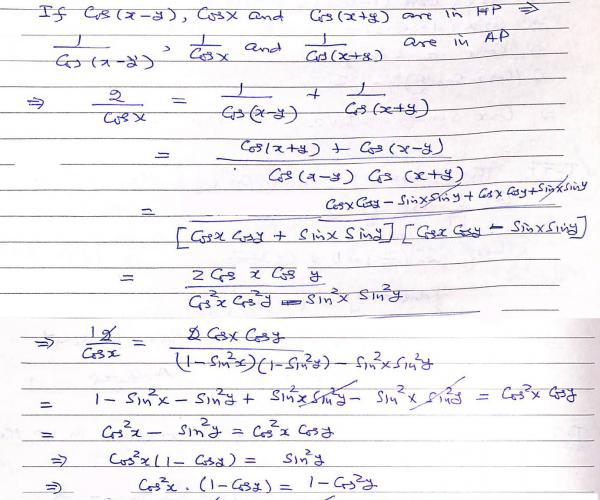 If Cos(x-y), Cosx and Cos(x+y) are in HP ⇒
1/Cos(x-y), 1/Cosx and 1/Cos(x+y) are in AP
⇒ 2/Cosx = 1/Cos(x-y) + 1/Cos(x+y)
= Cos(x+y) + Cos(x-y) / Cos(x-y) Cos(x+y)
= Cosx Cosy - Sinx Siny + Cosx Cosy + Sinx Siny / [Cosx Cosy + Sinx Siny] [Cosx Cosy - Sinx Siny]
= 2 Cos x Cos y / Cos²x Cos²y - Sin²x Sin²y
⇒ 1 2/Cosx = 2 Cosx Cosy / (1-Sin²x)(1-Sin²y) - Sin²x Sin²y
= 1 - Sin²x - Sin²y + Sin²x Sin²y - Sin²x Sin²y = Cos²x Cosy
= Cos²x - Sin²y = Cos²x Cosy
⇒ Cos²x (1 - Cosy) = Sin²y
⇒ Cos²x . (1-Cosy) = 1 - Cos²y